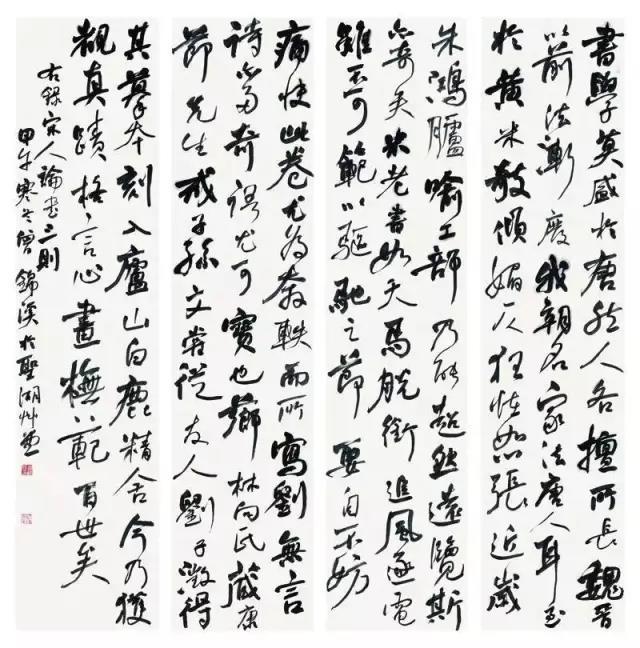 書學莫盛於唐然人各擅所長魏晉
以前法漸廢我朝名家法唐人耳至
於黃米欹傾媚仄狂怪怒張近歲
朱鴻臚喻工部乃能超然遠覽斯
亦奇矣米老書如天馬脫銜追風逐電
雖不可範以驅馳之節要自不妨
痛快此卷尤為奔軼而所寫劉無言
詩亦多奇語尤可寶也薌林向氏藏康
節先生戒子孫文嘗從友人劉子澂得
其摹本刻入廬山白鹿精舍今乃獲
觀真蹟格言心畫橅範百世矣
右錄宋人論書二則
甲午寒冬曾錦溪於聖湖艸堂